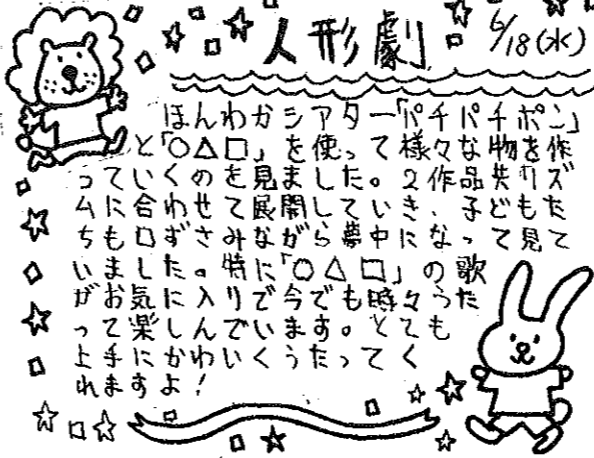 人形劇 6/18(水)
ほんわかシアター「パチパチポン」
と「○△□」を使って様々な物を作
っていくのを見ました。2作品共リズ
ムに合わせて展開していき、子どもた
ちも口ずさみながら夢中になって見て
いました。特に「○△□」の歌
がお気に入りで今でも時々うた
って楽しんでいます。とても
上手にかわいくうたってく
れますよ!